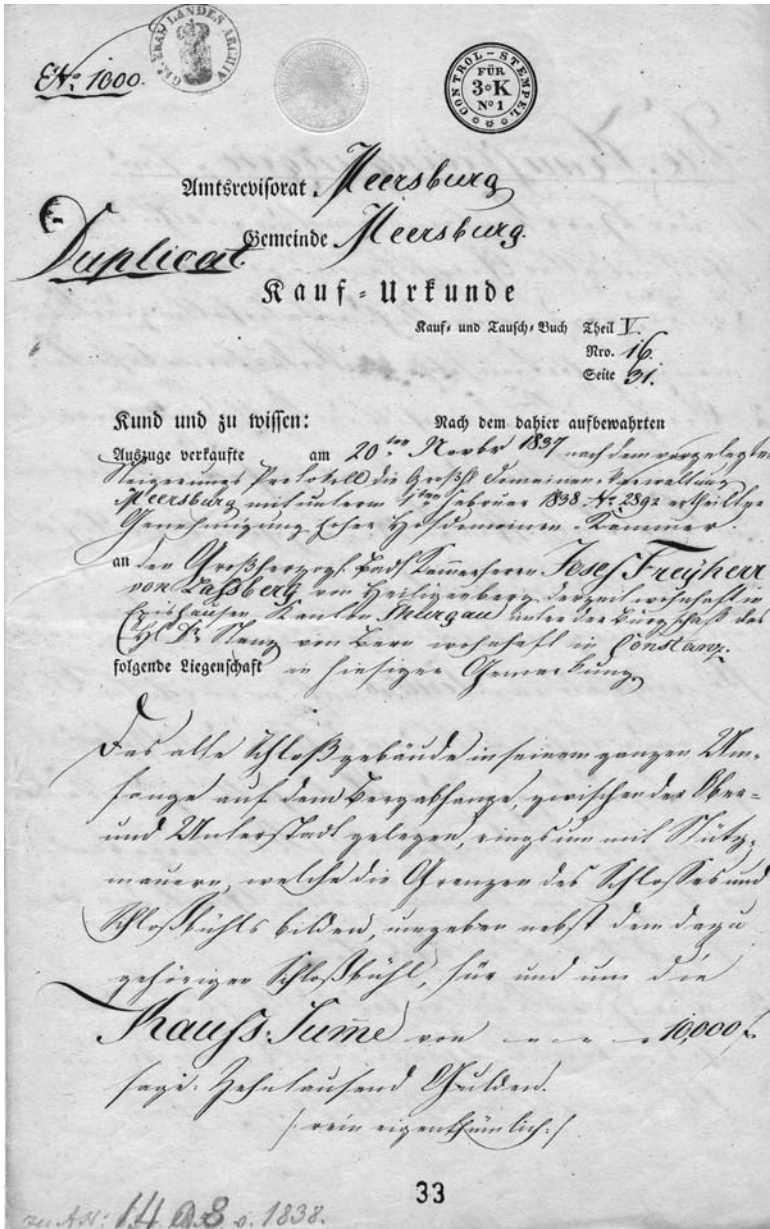 E.No. 1000.
LANDES ARCHIV
CONTROL-STEMPEL
FÜR
3∘K
No 1
Amtsrevisorat Meersburg
Gemeinde Meersburg.
Duplicat
Kauf-Urkunde
Kauf- und Tausch-Buch Theil V.
Nro. 16
Seite 31.
Kund und zu wissen: Nach dem dahier aufbewahrten
Auszuge verkaufte am 20ten Novbr 1837 nach dem vorgelegten
Steigerungs Protokoll die Großh. Domainen-Verwaltung
Meersburg mit unterm Februar 1838 No 2892 ertheilter
Genehmigung hoher Hofdomainen Kammer.
an den Großherzogl. Bad. Kammerherrn Josef Freyherr
von Laßberg von Heiligenberg derzeit wohnhaft in
Eppishausen Kanton Thurgau unter der Burgschaft des
von Bern wohnhaft in Constanz.
folgende Liegenschaft in hiesiger Gemarkung.
Das alte Schloßgebäude in seinem ganzen Um-
fange auf dem Bergabhange, zwischen der Ober-
und Unterstadt gelegen, ringsum mit Stütz-
mauern, welche die Grenzen des Schlosses und
Schloßbühls bilden, umgeben nebst dem dazu
gehörigen Schloßbühl, für und um die
Kaufs-Sum̄e von - - - 10,000 f.
sage. Zehntausend Gulden.
/: rein eigenthümlich :/
33
zu A.N: 14 1838.